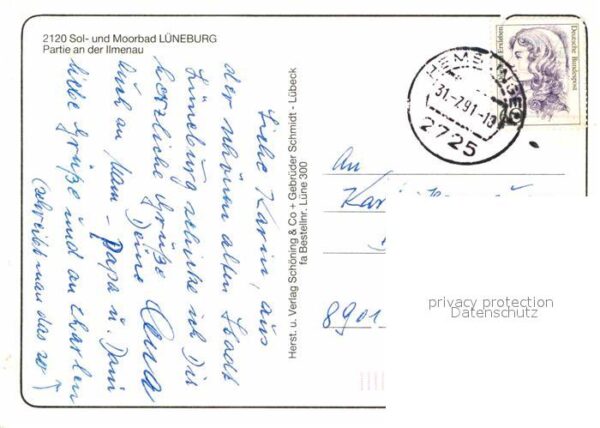 2120 Sol- und Moorbad LÜNEBURG
Partie an der Ilmenau
Liebe Karin, aus
der schönen alten Stadt
Lüneburg schicke ich Dir
herzliche Grüße Deine
auch an Mam - Papa u. Dani
liebe Grüße und an Charlen
(schreibt man das so?)
Herst. u. Verlag Schöning & Co + Gebrüder Schmidt - Lübeck
fa Bestellnr. Lüne 300
31.-7.91-13
2725
Erxleben
Deutsche Bundespost
An
Kar
8901
privacy protection
Datenschutz